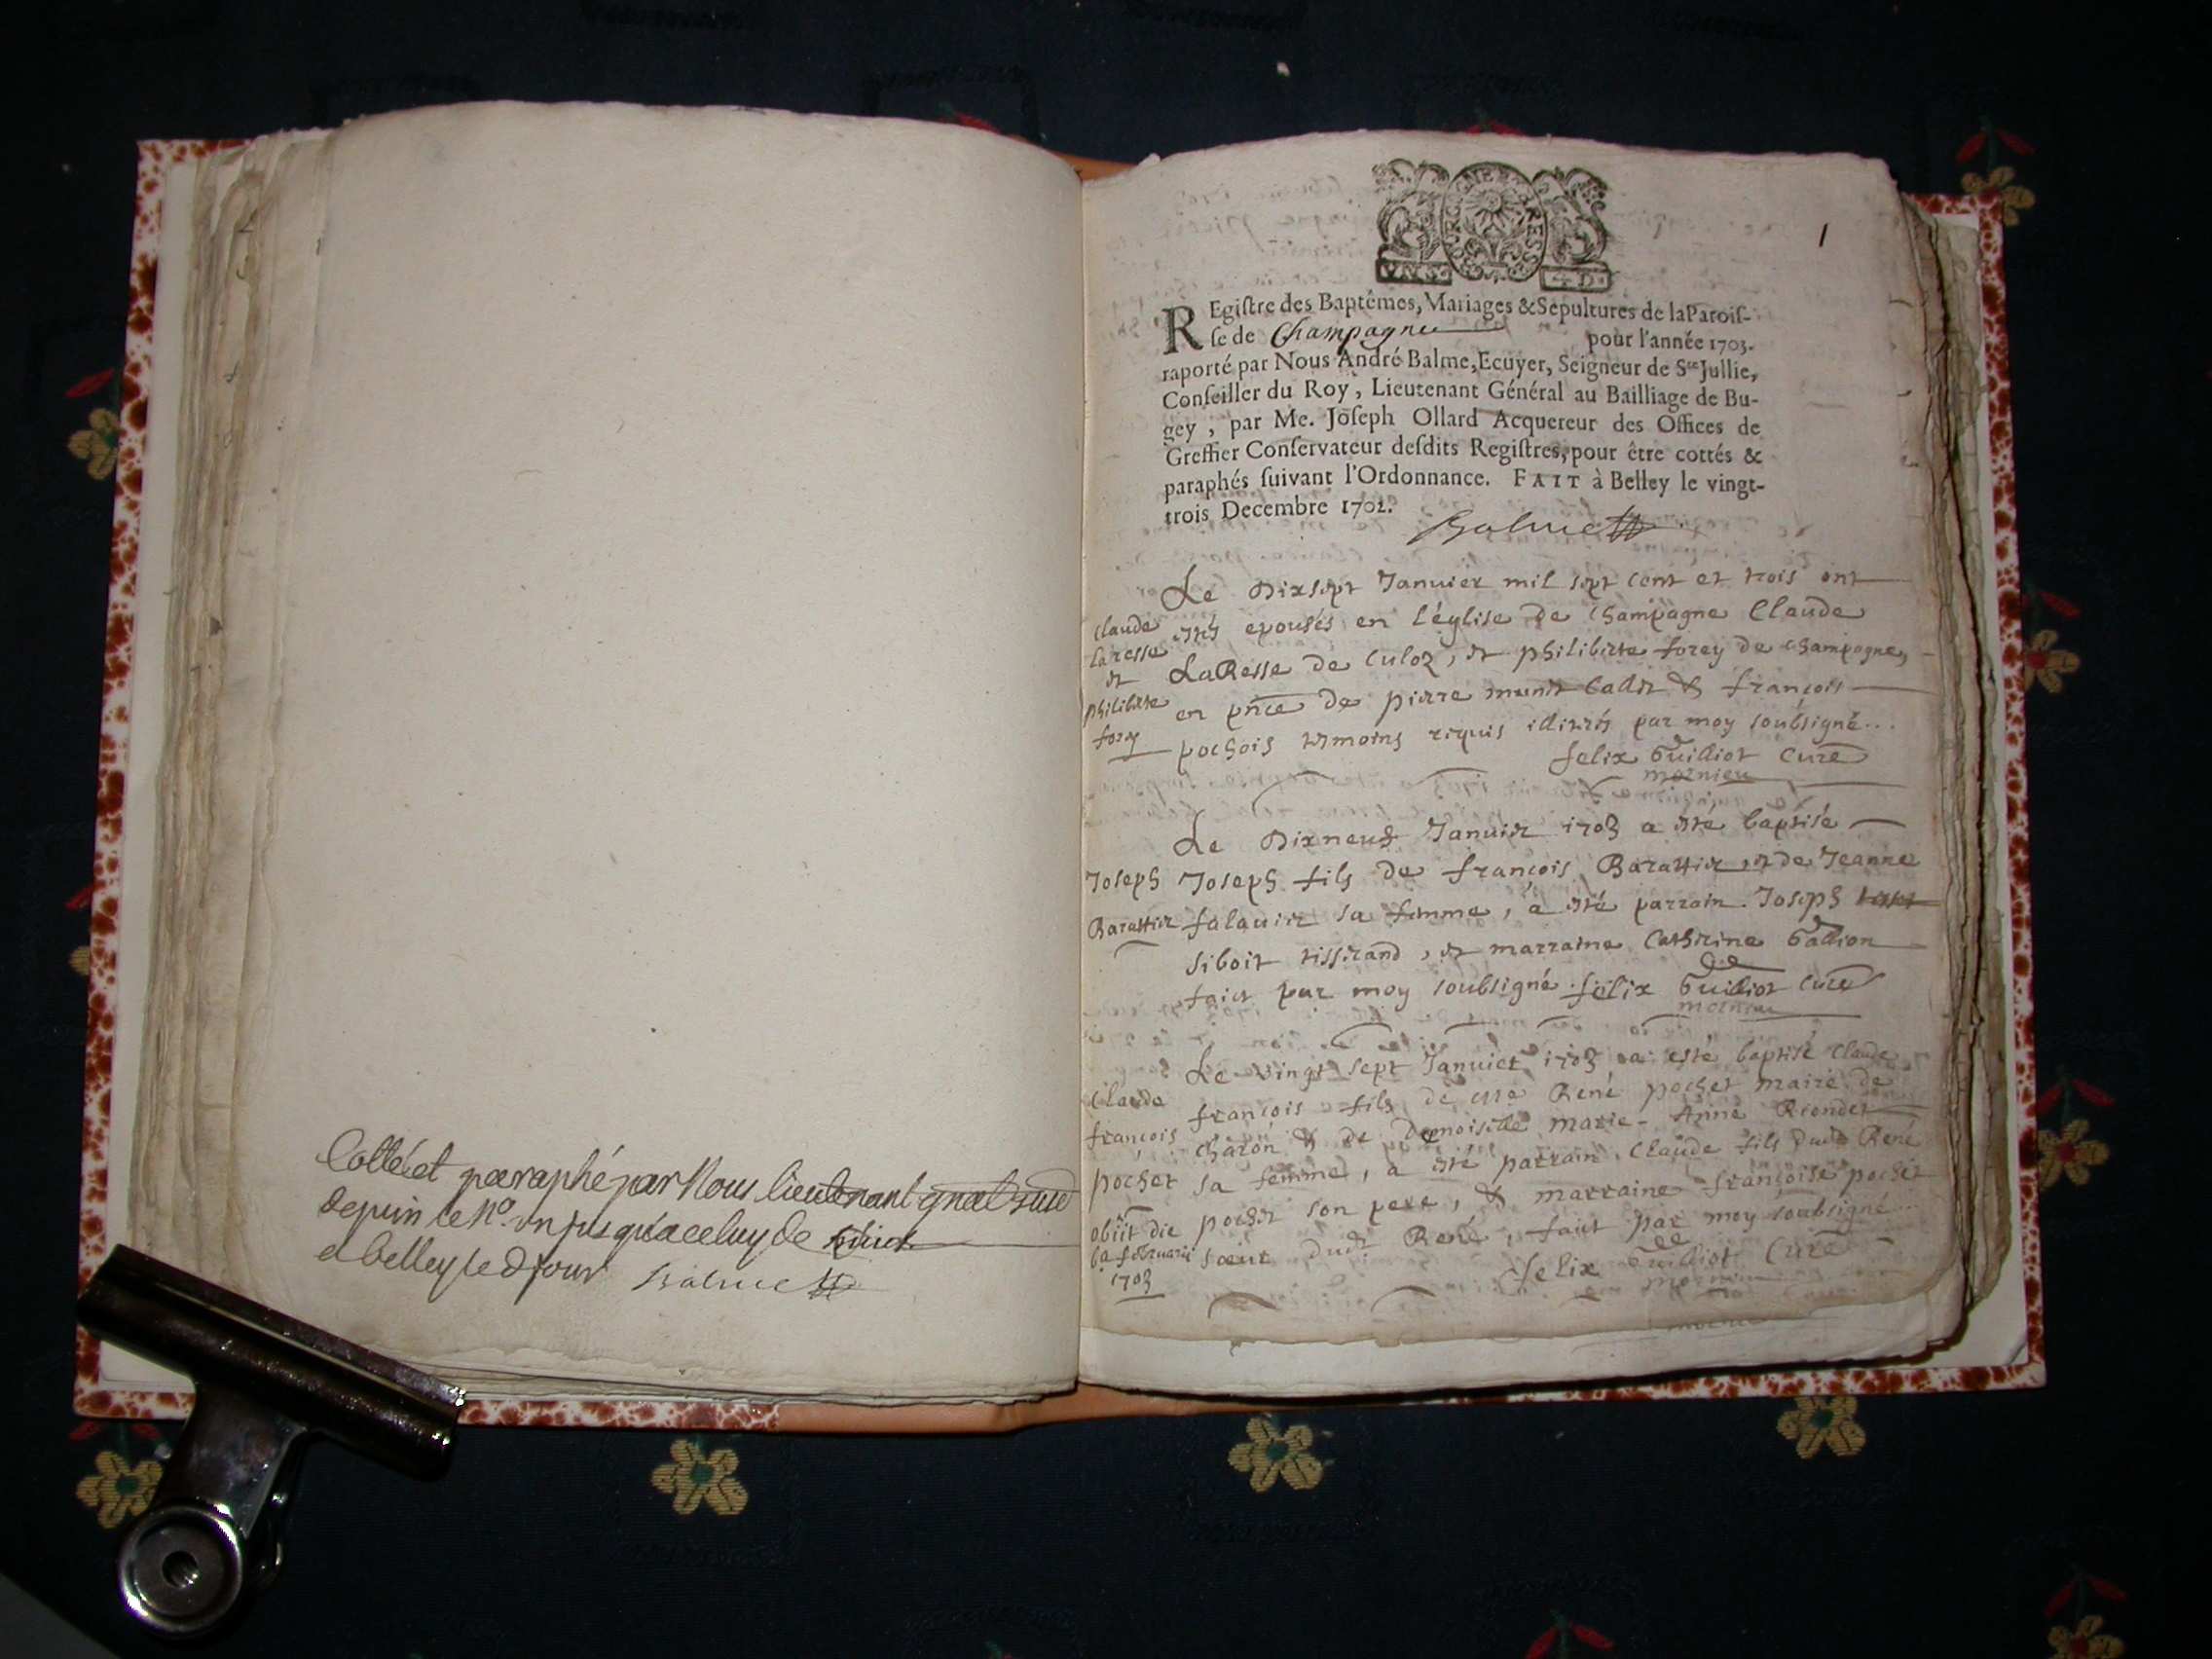 Cottéet paraphé par Nous lieutenant gnal susd
depuis le No. un jusqu'a celuy de
a belley le d jour Balme
1
REgiſtre des Baptêmes, Mariages & Sépultures de la Paroiſ-
ſe de Champagne pour l'année 1703.
raporté par Nous André Balme, Ecuyer, Seigneur de Ste Jullie,
Conſeiller du Roy, Lieutenant Général au Bailliage de Bu-
gey, par Me. Joſeph Ollard Acquereur des Offices de
Greffier Conſervateur deſdits Regiſtres, pour être cottés &
paraphés ſuivant l'Ordonnance. FAIT à Belley le vingt-
trois Decembre 1702.
Balme
Le Dixsept Janvier mil sept cent et trois ont
estés epousés en l'église de Champagne Claude
LaResse de Culoz, et philiberte forey de Champagne,
en pnce de pierre munet Cadet & françois
pochois temoins requis illitrés par moy soubsigné...
felix Guilliot Curé
de mornieu
Claude
laresse
et
philiberte
forey
Le Dixneuf Janvier 1703 a esté baptisé
Joseph fils de françois Barattier, et de Jeanne
falavier sa femme, a esté parrain Joseph
siboit tisserand, et marraine Catherine Gallion
faict par moy soubsigné felix Guilliot Curé
de mornieu
Joseph
Barattier
Le vingt sept Janvier 1703 a esté baptisé Claude
françois fils de René pochet maire de
& de Demoiselle marie-Anne Riondet
sa femme, a esté parrain Claude fils dudt René
pochet son pere, & marraine françoise pochet
sœur dudt René, faict par moy soubsigné
felix Guilliot Curé
de mornieu
Claude
françois
pochet
obiit die
6a februarii
1703